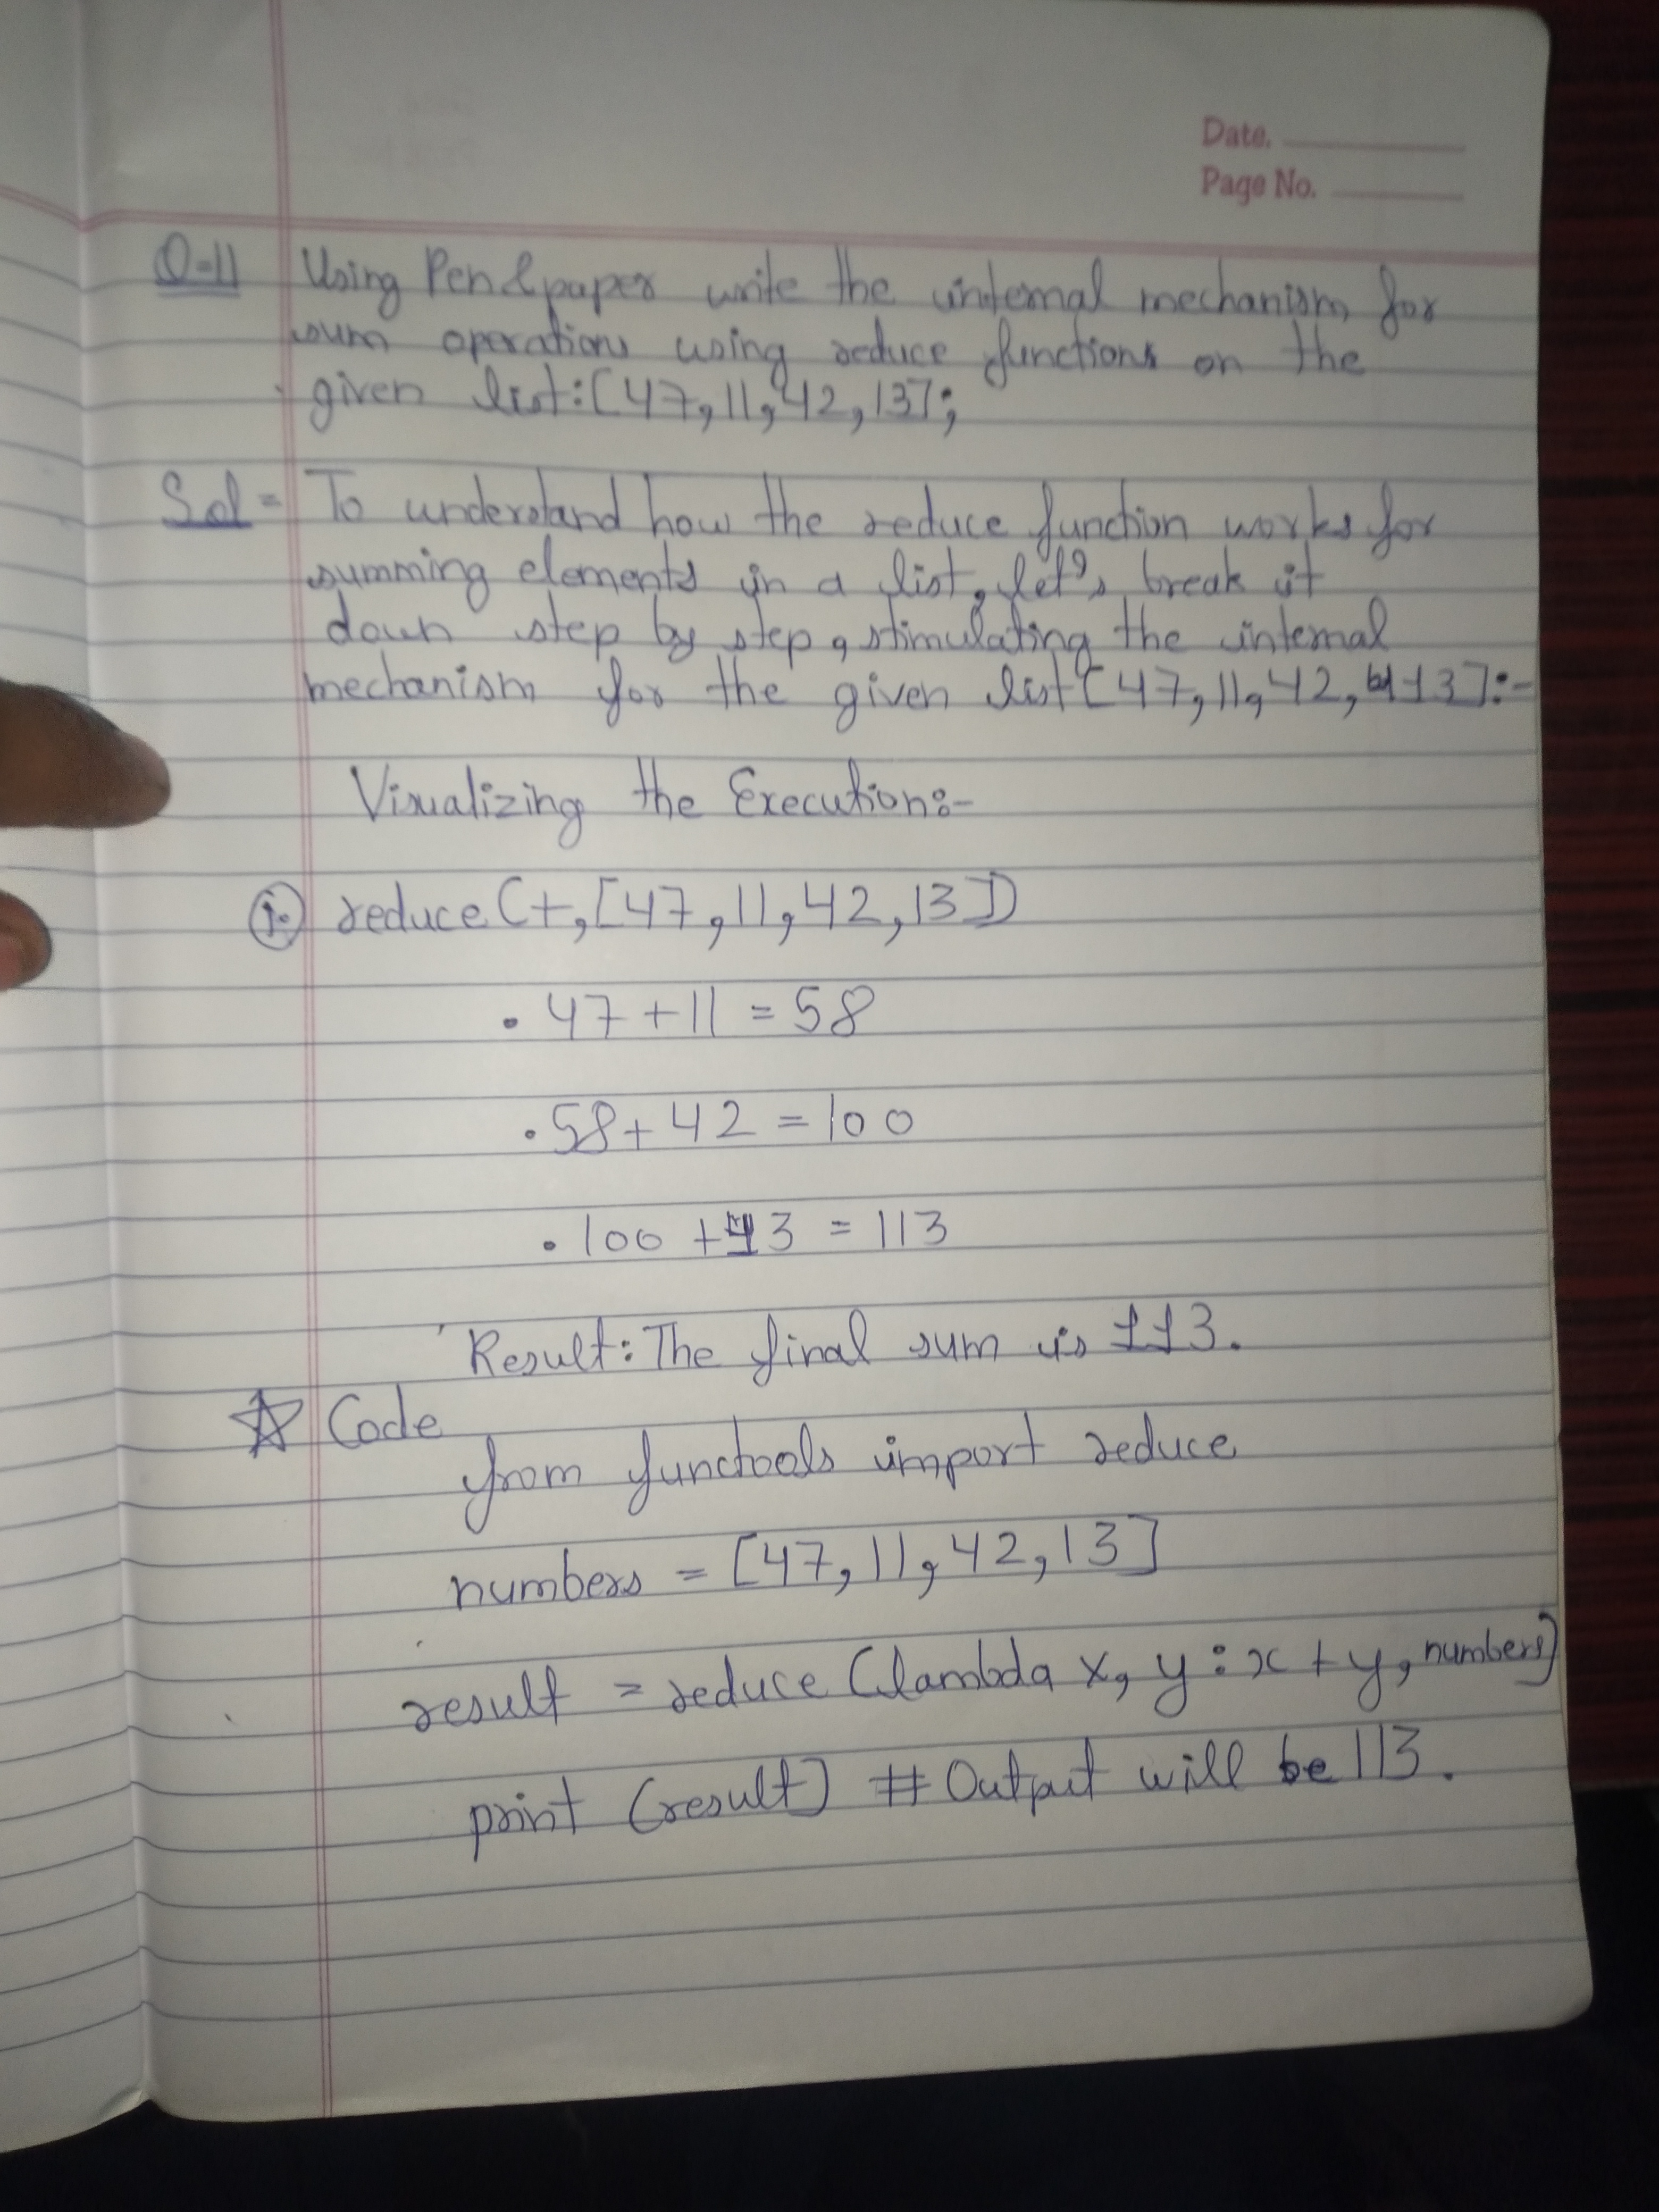 Date.
Page No.
Q-11 Using Pen & paper write the internal mechanism for
sum operation using reduce functions on the
given list:[47,11,42,13];
Sol = To understand how the reduce function works for
summing elements in a list, let's break it
down step by step, stimulating the internal
mechanism for the given list [47,11,42, 13]:-
Visualizing the Execution:-
i. reduce (+,[47,11,42,13])
• 47+11 = 58
• 58+42 = 100
• 100 + 13 = 113
Result: The final sum is 113.
☆ Code
from functools import reduce
numbers = [47,11,42,13]
result = reduce (lambda x, y : x + y, numbers)
print (result) # Output will be 113.